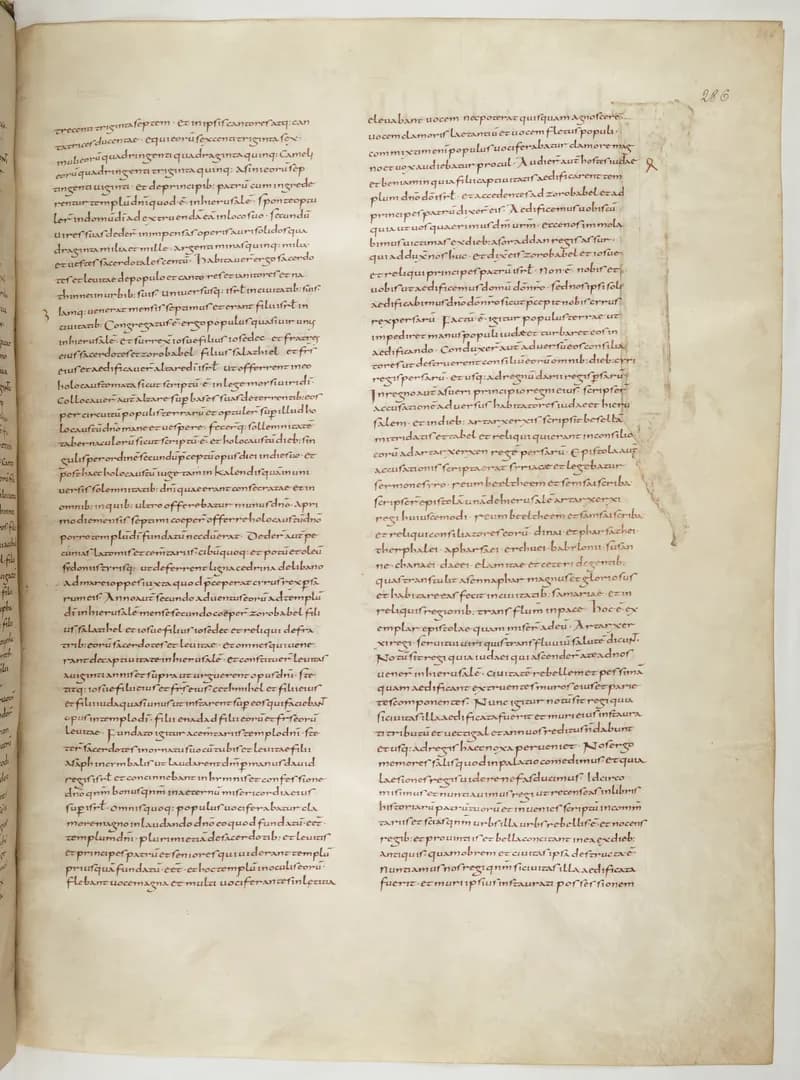 286
trecenti triginta septem · Et in ipsis cantores atq: can
tatrices ducentae · equi eorũ sexcenti triginta sex ·
muli eorũ quadringenti quadraginta quinq: Cameli
eorũ quadringenti triginta quinq: Asini eorũ sep
tingenti uiginti · Et de principib: patrũ cum ingrede
rentur templũ dñi quod ẽ · in hierusalẽ · sponte optu
ler in domũ dĩ ad extruendã eã in loco suo · Secundũ
uires suas deder inimpensas operis auri solidos qua
draginta milia et mille · argenti minas quinq: milia
et uestes sacerdotales centũ · Habitauer ergo sacerdo
tes et leuitae de populo et cantores et ianitores et na
thinnei in urbib: suis · uniuersusq: isrł in ciuitatib: suis
Iamq: uenerat mensis septimus et erant filii isrł in
ciuitatib: Congregatus ẽ ergo populus quasi uir unus
in hierusalẽ · Et surrex iosue filius iosedec · et fratres
eius sacerdotes et zorobabel · filius salathiel · et frs
eius et aedificauer altare dĩ isrł · ut offerrent in eo
holocaustomata sicut scriptũ ẽ · in lege morsi uiri dĩ ·
Collocauer aut altare sup bases suas deterrentib: eos
per circuitũ populis terrarũ et optuler sup illud ho
locaustũ dño mane et uespere · fecerq: sollemnitatẽ
tabernaculorũ sicut scriptũ ẽ · et holocaustũ dieb: sin
gulis per ordinẽ secundũ pceptũ opus diei in die suo · et
post haec holocaustũ iuge tam in kalendis quam in uni
uersis solemnitatib: dñi quae erant consecratae · et in
omnib: in quib: ultro offerebatur munus dño · A pri
mo die mensis septimi coeper offerre holocaustũ dño
porro templũ dĩ fundatũ nec dũ erat · Deder aut pe
cunias latomis et cementariis · cibũ quoq: et potũ et oleũ
sidoniis tyriisq: ut deferrent ligna cedrina de libano
ad mare ioppes iuxta quod pceperat cyrus rex psa
rum eis · Anno aut secundo aduentus eorũ ad templũ
dĩ in hierusalẽ mense secundo coeper zorobabel fili
us salathiel et iosue filius iosedec et reliqui de fra
trib: eorũ sacerdotes et leuitae · et omnes qui uene
rant de captiuitate in hierusalẽ · Et constituer leuitas
a uiginti annis et supra ut urguerent opus dñi · Ste
titq: iosue filii eius et frs eius cethmihel et filii eius
et filii iuda quasi unus ut instarent sup eos qui faciebant
opus in templo dĩ · filii enadad filii eorũ et frs eorũ
leuitae · Fundato igitur a cementariis templo dñi · Ste
ter sacerdotes in ornatu suo cũ tubis et leuitae filii
Asaph in cymbalis ut laudarent dm̃ p manus dauid
regis isrł · et concinebant in hymnis et confessione
dño qnm̃ bonus qnm̃ in aeternũ misericordia eius
sup isrł · Omnis quoq: populus uociferabatur cla
more magno in laudando dño eo quod fundatũ eet
templum dñi · plurimi etiã de sacerdotib: et leuitis
et principes patrũ et seniores qui uiderant templũ
prius quã fundatũ eet · et hoc templũ in oculis eorũ
flebant uoce magna et multi uociferantes in letitia
eleuabant uocem nec poterat quisquam agnoscere
uocem clamoris laetantiũ et uocem fletus populi ·
commixtim enĩ populus uociferabatur clamore mag
no et uox audiebatur procul · Audier aut hostes iudae
et beniamin quia filii captiuitatis aedificarent tem
plum dño dõ isrł · et accedentes ad zorobabel et ad
principes patrũ dixer eis · Aedificemus uobiscũ
quia ut uos quaerimus dm̃ urm̃ · ecce nos immola
bimus uictimas ex dieb: asor addan regis assur ·
qui adduxit nos huc · et dixit eis zorobabel et iosue
et reliqui principes patrũ isrł · Non ẽ · nobis et
uobis ut aedificemus domũ dõ nro · sed nos ipsi soli
aedificabimus dño dõ nro sicut pcepit nobis cyrus
rex persarũ · Factũ ẽ · igitur populus terrae ut
impediret manus populi iudae et turbaret eos in
aedificando · Conduxer aut aduersũ eos consilia
tores ut destruerent consiliũ eorũ omnib: dieb: cyri
regis persarũ · et usq: ad regnũ darii regis psarũ
In regno aut asueri principio regni eius scripser
accusationẽ aduersus habitatores iudae et hieru
salem · et in dieb: artarxerxis scripsit besellã
mitridatis et tabel et reliqui qui erant in consilio
eorũ ad artarxerxen regẽ persarũ · Epistola aut
accusationis scripta erat syriace et legebatur
sermone syro · reum beelteem et samsai scriba
scripser epistolã unã de hierusalẽ artarxerxi
regi huiuscemodi · reum beelteem et samsai scriba
et reliqui consiliatores eorũ · dinai · et pharsathei ·
therphalei · apharsaei · erchuei · babylonii · susan
ne chanaei · daei · elamitae et ceteri de gentib:
quas transtulit asennaphar magnus et gloriosus
et habitare eas fecit in ciuitatib: samariae · et in
reliquis regionib: trans flum̃ in pace · Hoc ẽ · ex
emplar epistolae quam miser ad eũ · Artarxer
xi regi · serui tui uiri qui s trans fluuiũ salutẽ dicuñ ·
Notũ sit regi quia iudaei qui ascender a te ad nos
uener in hierusalẽ · ciuitatẽ rebellem et pessimã
quam aedificant extruentes muros eius et parie
tes componentes · Nunc igitur notũ sit regi quia
si ciuitas illa aedificata fuerit et muri eius instaura
ti tributũ et uectigal et annuos reditus ñ dabunt
et usq: ad regis haec noxa perueniet · Nos ergo
memores salis quod in palatio comedimus et quia
laesiones regis uidere nefas ducimus · Idcirco
misimus et nuntiauimus regi ut recenseas in libris
historiarũ patrũ tuorũ et inuenies scriptũ in comm̃
tariis et scias qnm̃ urbs illa urbs rebellis ẽ · et nocens
regib: et prouintiis et bella concitant in ea ex dieb:
antiquis quam obrem et ciuitas ipsa destructa ẽ ·
Nuntiamus nos regi qnm̃ si ciuitas illa aedificata
fuerit · et muri ipsius instaurati possessionem